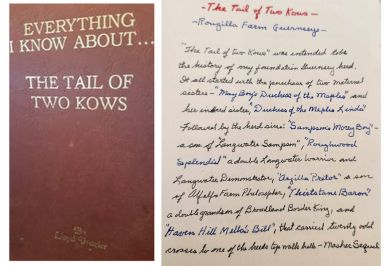 EVERYTHING
I KNOW ABOUT...
THE TAIL OF
TWO KOWS
By
- The Tail of Two Kows -
- Rougilla Farm Guernseys -
"The Tail of Two Kows" was intended to be
the history of my foundation Guernsey herd.
It all started with the purchase of two maternal
sisters - "May Boy's Duchess of the Maples" and
her inbred sister, "Duchess of the Maples Linda"
Followed by the herd sires: "Sampson's Morey Boy" -
a son of Langwater Sampson, "Roughwood
Splendid" a double Langwater Warrior and
Langwater Demonstrator, "Argilla Pretor" a son
of Alfalfa Farm Philosopher, "Thiststane Baron"
a double grandson of Broadland Border King, and
"Haven Hill Mella's Bill", that carried twenty odd
crosses to one of the breeds top male bulls - Masher Sequel